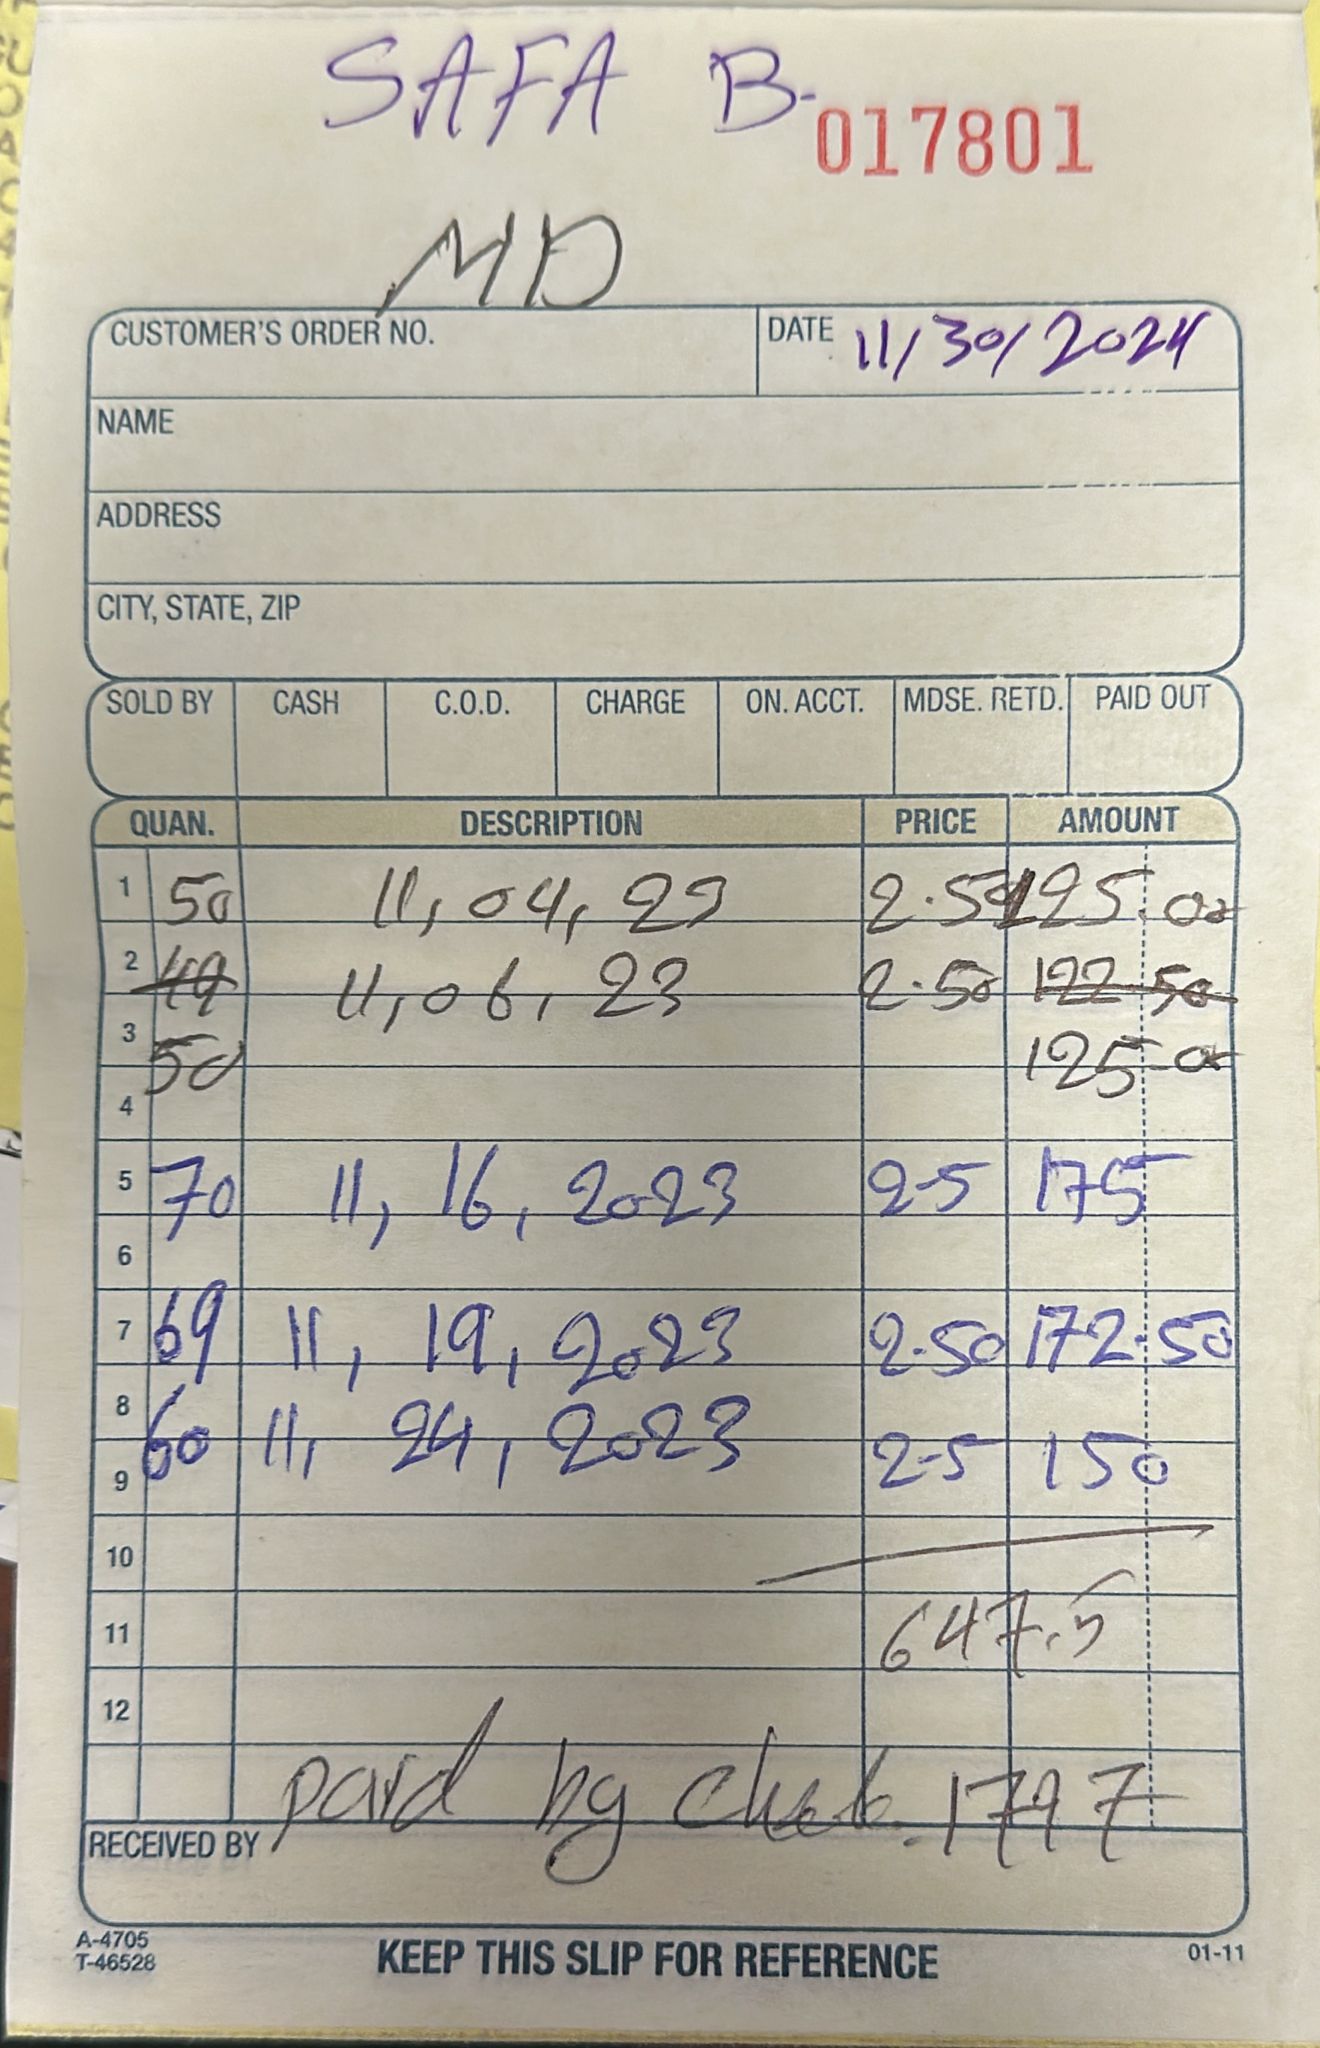 SAFA B-
017801
MD
CUSTOMER'S ORDER NO. DATE 11/30/2024
NAME
ADDRESS
CITY, STATE, ZIP
SOLD BY CASH C.O.D. CHARGE ON. ACCT. MDSE. RETD. PAID OUT
QUAN. DESCRIPTION PRICE AMOUNT
1 50 11, 04, 23 2.50 125.00
2 49 11, 06, 23 2.50 122.50
3 50 125.00
4
5 70 11, 16, 2023 2.5 175
6
7 69 11, 19, 2023 2.50 172.50
8 60 11, 24, 2023 2.5 150
9
10
11 647.5
12
paid by check. 1797
RECEIVED BY
A-4705
T-46528
KEEP THIS SLIP FOR REFERENCE
01-11